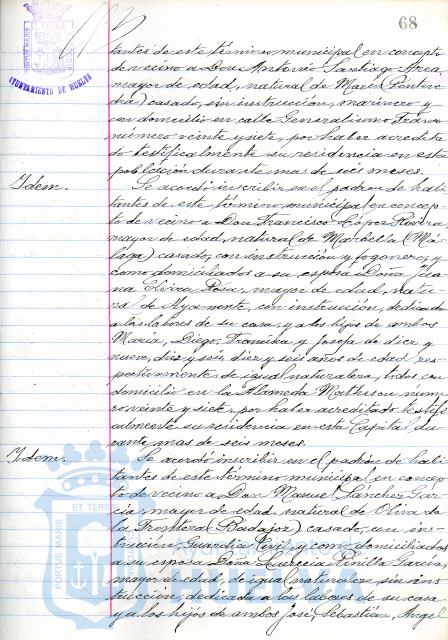 68
AYUNTAMIENTO DE HUELVA
tantes de este término municipal en concepto
de vecino a Don Antonio Santiago
mayor de edad, natural de Marín (Ponteve
dra) casado, sin instrucción, marinero y
con domicilio en calle Generalísimo Franco
número veinte y siete, por haber acredita
do testificalmente su residencia en esta
población durante mas de seis meses.
Idem.
Se acordó inscribir en el padrón de habi
tantes de este término municipal en concep
to de vecino a Don Francisco López Rovira
mayor de edad, natural de Marbella (Má
laga) casado, con instrucción y fogonero, y
como domiciliados a su esposa Doña Jua
na Elvira Rosa, mayor de edad, natu
ral de Ayamonte, con instrucción, dedicada
a las labores de su casa, y a los hijos de ambos
María, Diego, Francisca y Josefa de diez y
nueve, diez y seis, diez y seis años de edad, res
pectivamente, de igual naturaleza, todos con
domicilio en la Alameda Mathesson núme
ro veinte y siete, por haber acreditado testifi
calmente su residencia en esta Capital du
rante mas de seis meses.
Idem.
Se acordó inscribir en el padrón de habi
tantes de este término municipal en concep
to de vecino a Don Manuel Sánchez Gar
cía, mayor de edad, natural de Oliva de
la Frontera (Badajoz) casado, con ins
trucción, Guardia Civil, y como domiciliados
a su esposa Doña Lucrecia Pinilla García,
mayor de edad, de igual naturaleza, sin ins
trucción, dedicada a las labores de su casa
y a los hijos de ambos José, Sebastián, Angel
ET TERR
PORTUS MARIS